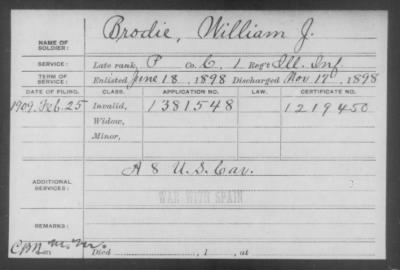 NAME OF SOLDIER: Brodie, William J.
SERVICE: Late rank, P Co. C, 1 Reg't Ill. Inf.
TERM OF SERVICE: Enlisted June 18, 1898 Discharged Nov. 17, 1898
DATE OF FILING. CLASS. APPLICATION NO. LAW. CERTIFICATE NO.
1909, Feb. 25 Invalid, 1381548 1219450
Widow,
Minor,
ADDITIONAL SERVICES: A 8 U.S. Cav.
WAR WITH SPAIN
REMARKS:
Died , 1 , at